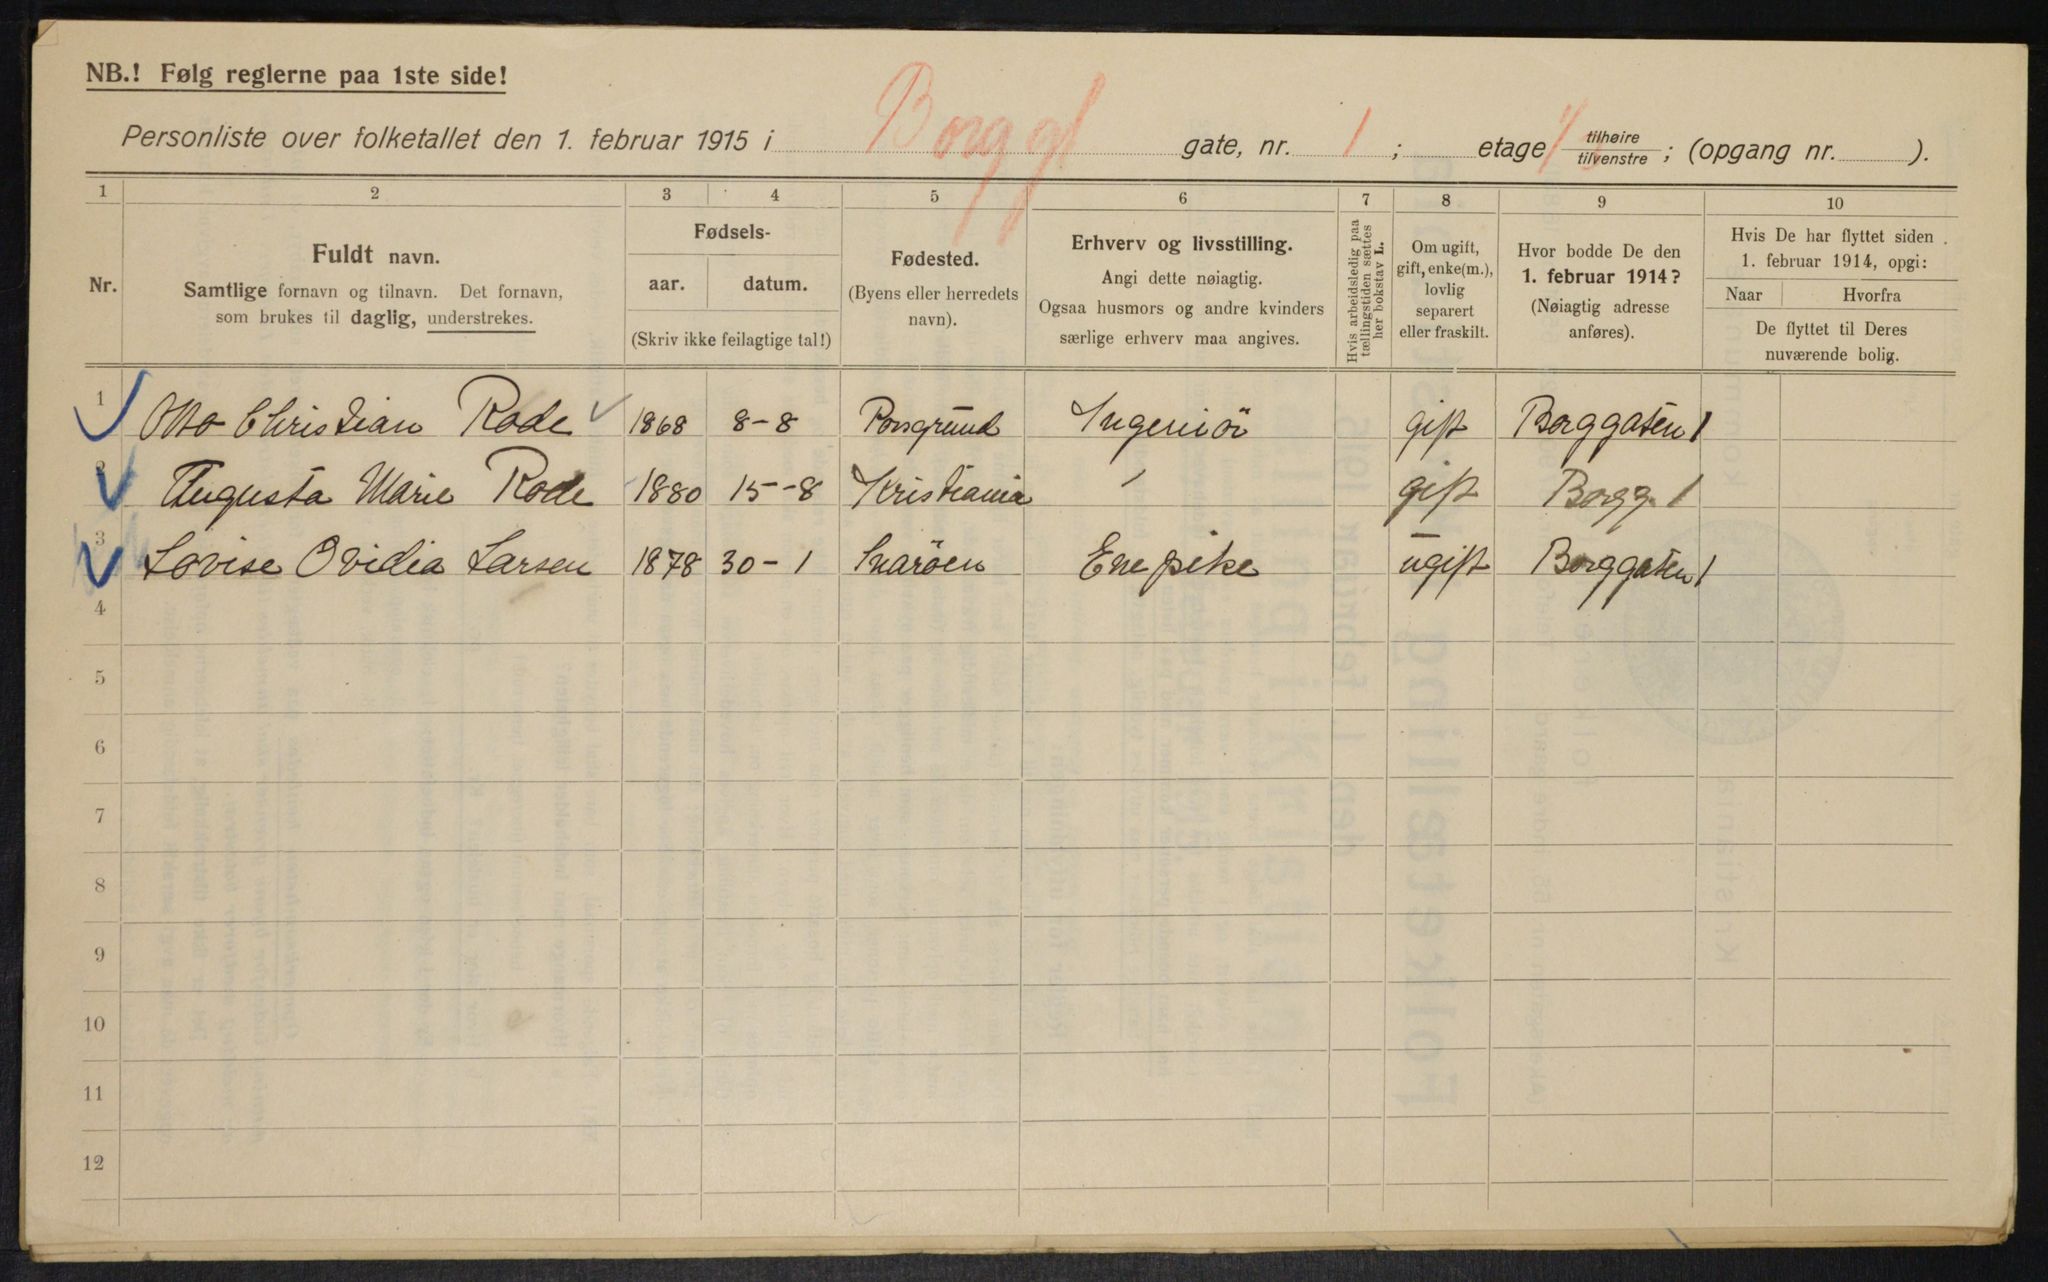 NB.! Følg reglerne paa 1ste side!
Personliste over folketallet den 1. februar 1915 i Borggt gate, nr. 1; etage tilhøire tilvenstre; (opgang nr. ).
1 2 3 4 5 6 7 8 9 10
Nr.
Fuldt navn.
Samtlige fornavn og tilnavn. Det fornavn,
som brukes til daglig, understrekes.
Fødsels-
aar. datum.
(Skriv ikke feilagtige tal!)
Fødested.
(Byens eller herredets
navn).
Erhverv og livsstilling.
Angi dette nøiagtig.
Ogsaa husmors og andre kvinders
særlige erhverv maa angives.
Hvis arbeidsledig paa
tællingstiden sættes
her bokstav L.
Om ugift,
gift, enke(m.),
lovlig
separert
eller fraskilt.
Hvor bodde De den
1. februar 1914?
(Nøiagtig adresse
anføres).
Hvis De har flyttet siden
1. februar 1914, opgi:
Naar Hvorfra
De flyttet til Deres
nuværende bolig.
1 Otto Christian Rode 1868 8-8 Porsgrund Ingeniör gift Borggaten 1
2 Augusta Marie Rode 1880 15-8 Kristiania gift Borgg. 1
3 Lovise Ovidia Larsen 1878 30-1 Snaröen Enepike ugift Borggaten 1
4
5
6
7
8
9
10
11
12